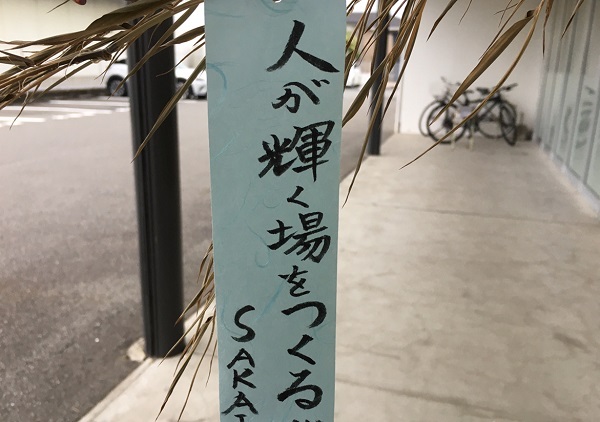 人が輝く場をつくる
SAKAI